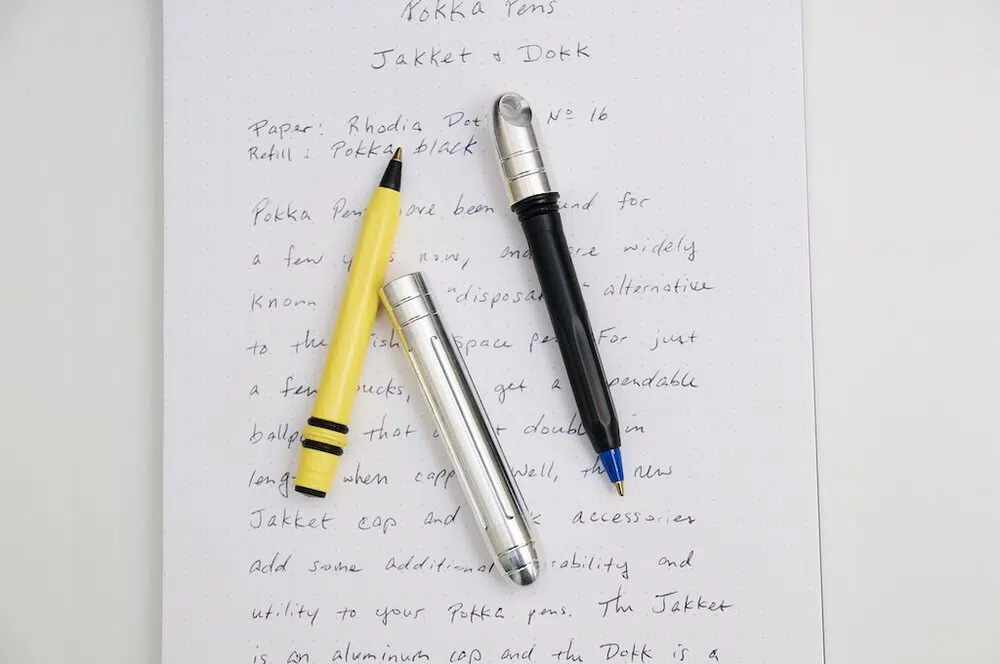 Pokka Pens
Jakket & Dokk
Paper: Rhodia Dot Nº 16
Refill: Pokka black
Pokka Pens have been for
a few now, and widely
Known "disposa " alternative
to the Space For just
a few bucks, get a
ballp that doub in
leng when capp Well, the new
Jakket cap and accessories
add some additional ability and
utility to your Pokka pens. The Jakket
is an aluminum cap and the Dokk is a